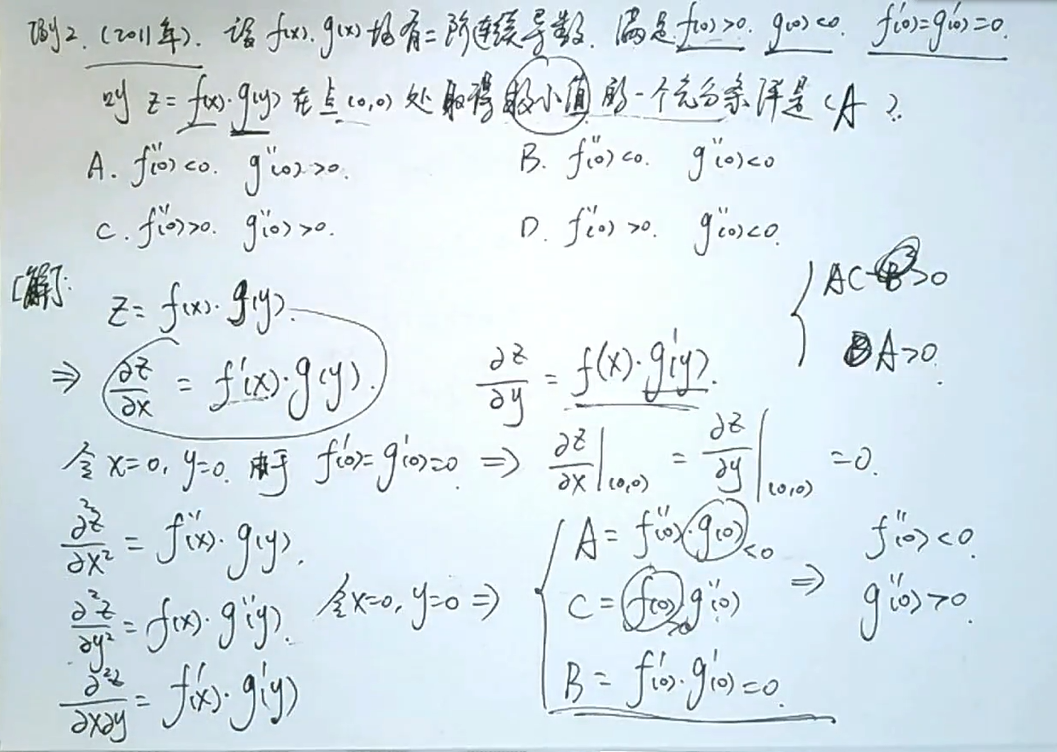 例2.(2011年). 设 f(x). g(x)均有二阶连续导数. 满足f(0)>0. g(0)<0. f'(0)=g'(0)=0.
则 z=f(x)·g(y)在点(0,0)处取得极小值的一个充分条件是(A).
A. f''(0)<0. g''(0)>0. B. f''(0)<0. g''(0)<0
C. f''(0)>0. g''(0)>0. D. f''(0)>0. g''(0)<0.
[解]: z=f(x)·g(y).
AC-B²>0
A>0.
⇒ ∂z/∂x = f'(x)·g(y). ∂z/∂y = f(x)·g'(y).
令x=0, y=0. 由于 f'(0)=g'(0)=0 ⇒ ∂z/∂x|(0,0) = ∂z/∂y|(0,0) =0.
∂²z/∂x² = f''(x)·g(y).
∂²z/∂y² = f(x)·g''(y).
∂²z/∂x∂y = f'(x)·g'(y)
令x=0, y=0 ⇒
A= f''(0)·g(0) <0
C= f(0)·g''(0) >0
B= f'(0)·g'(0)=0.
⇒ f''(0)<0.
g''(0)>0.